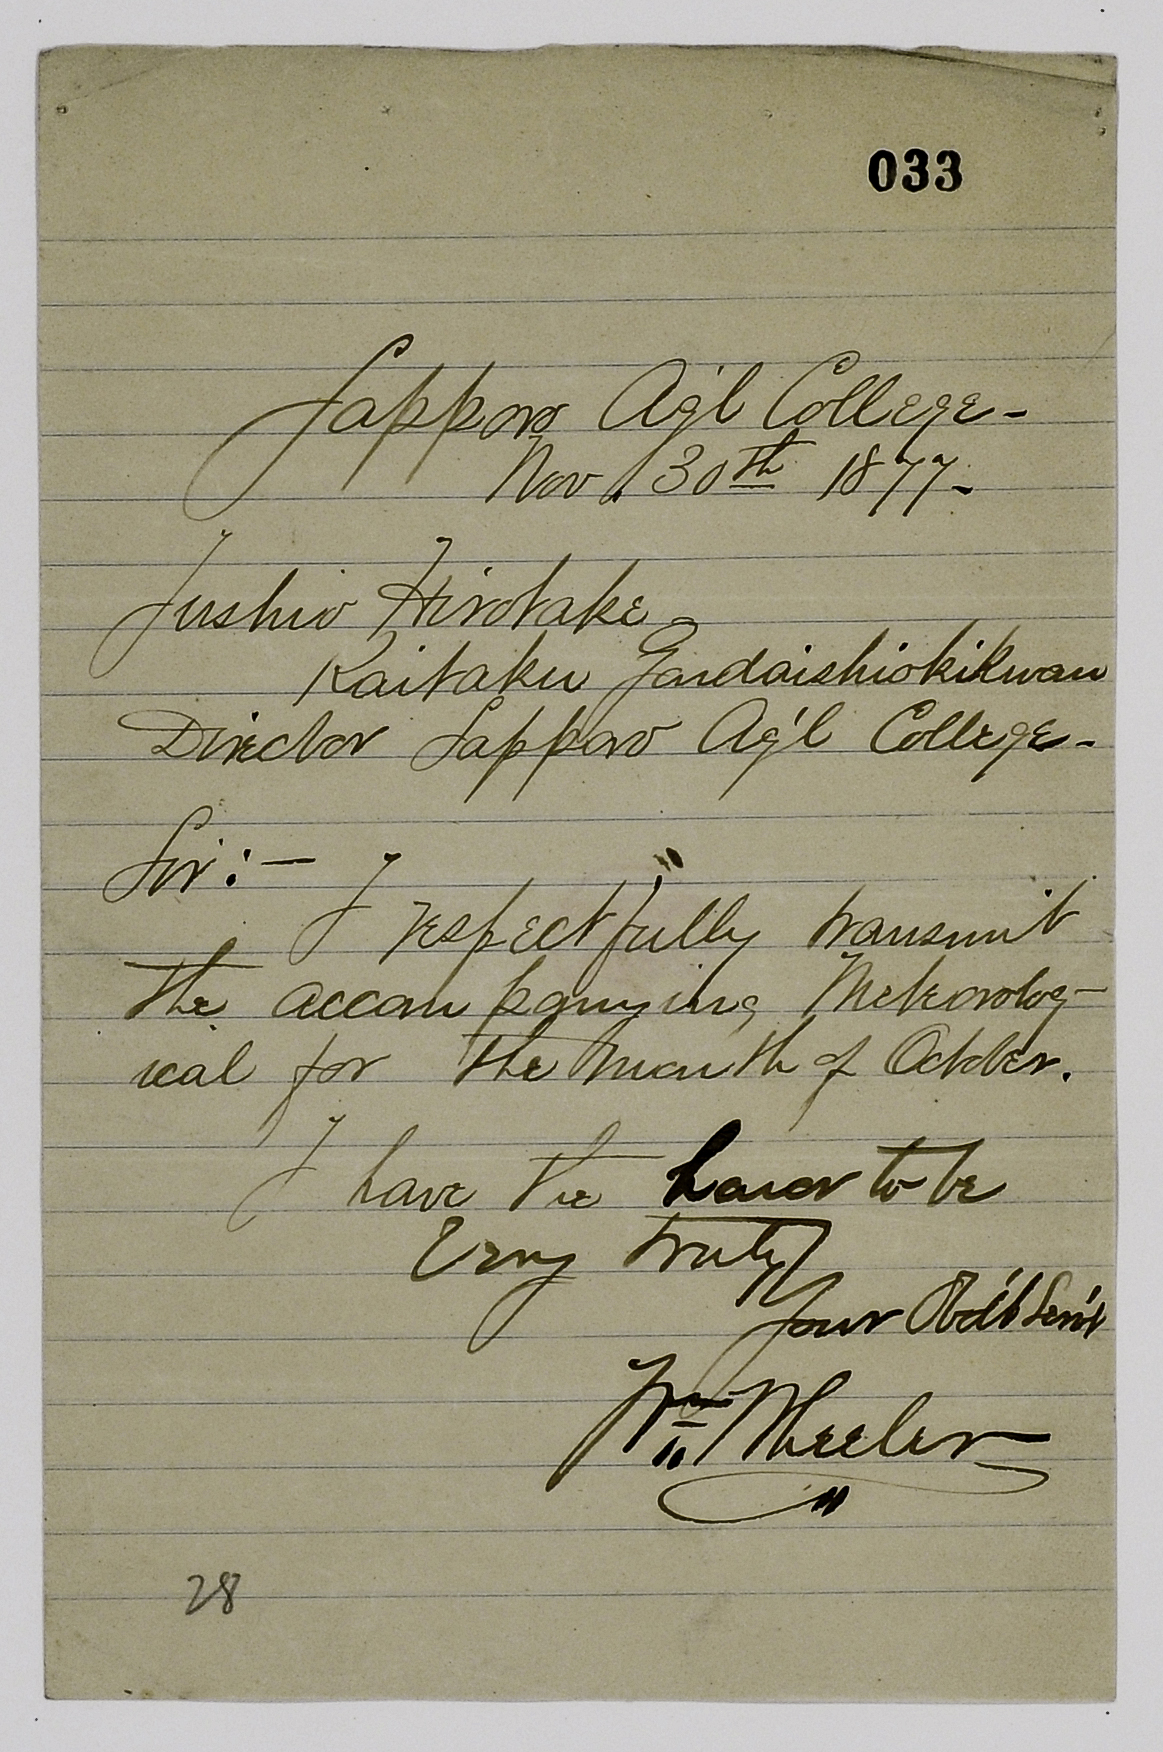 033
Sappors Ag'l College -
Nov. 30th 1877 -
Jushio Hirotake
Kaitaku Gondaishiokikwan
Director Sapporo Ag'l College -
Sir : —
I respectfully transmit
the accompanying Meteorolog-
ical for the month of October.
I have the honor to be
Very truly
Your Obd't Serv't
Wm Wheeler
28